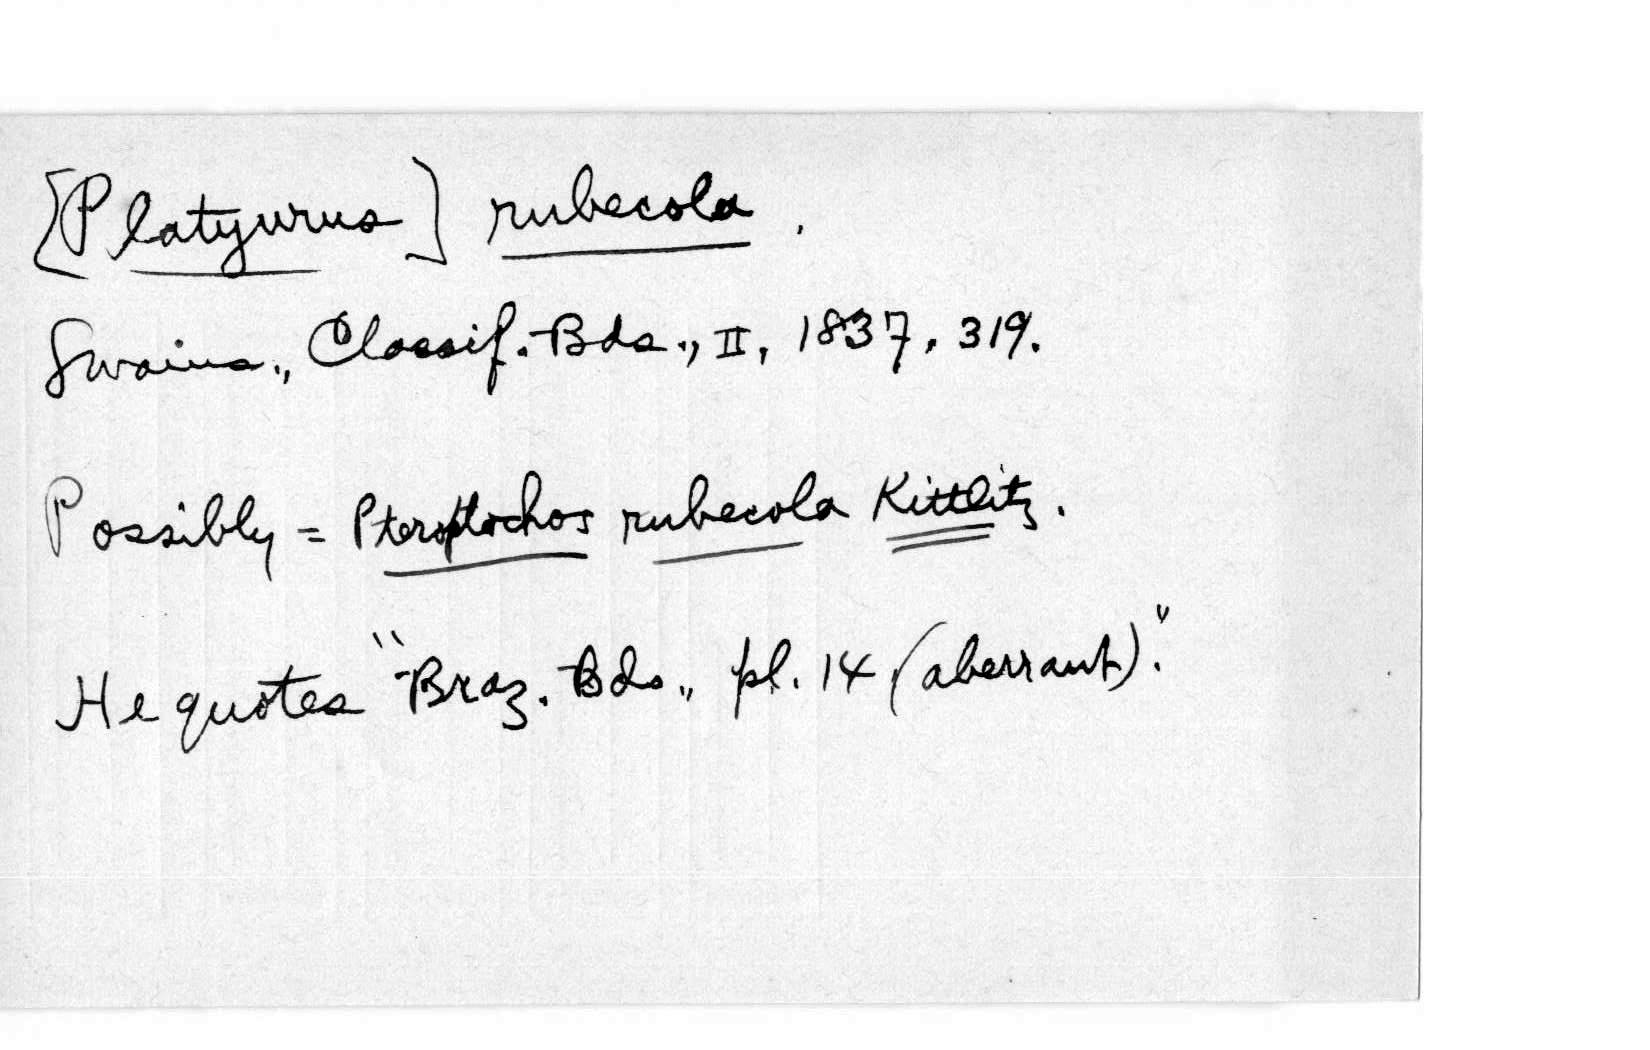 [Platyurus] rubecola.
Swains., Classif. Bds., II, 1837, 319.
Possibly = Pteroptochos rubecola Kittlitz.
He quotes "Braz. Bds., pl. 14 (aberrant)."